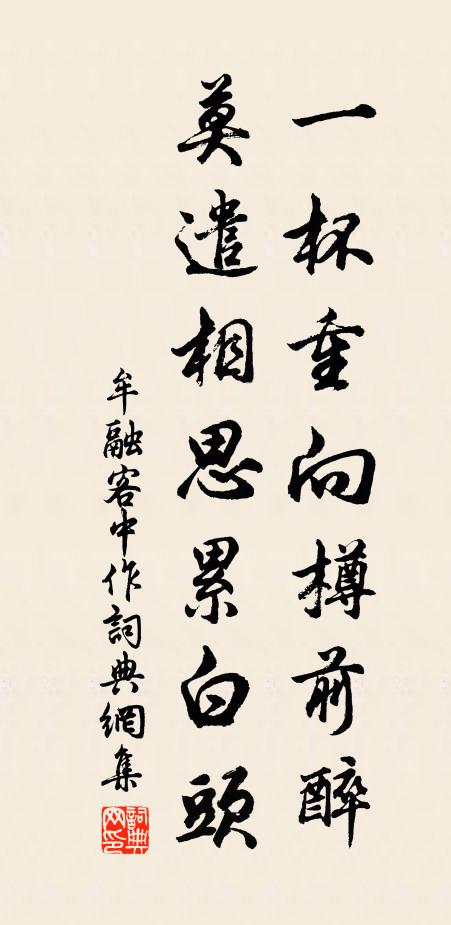 一杯重向樽前醉
莫遣相思累白頭
牟融客中作詞典網集
詞典網印